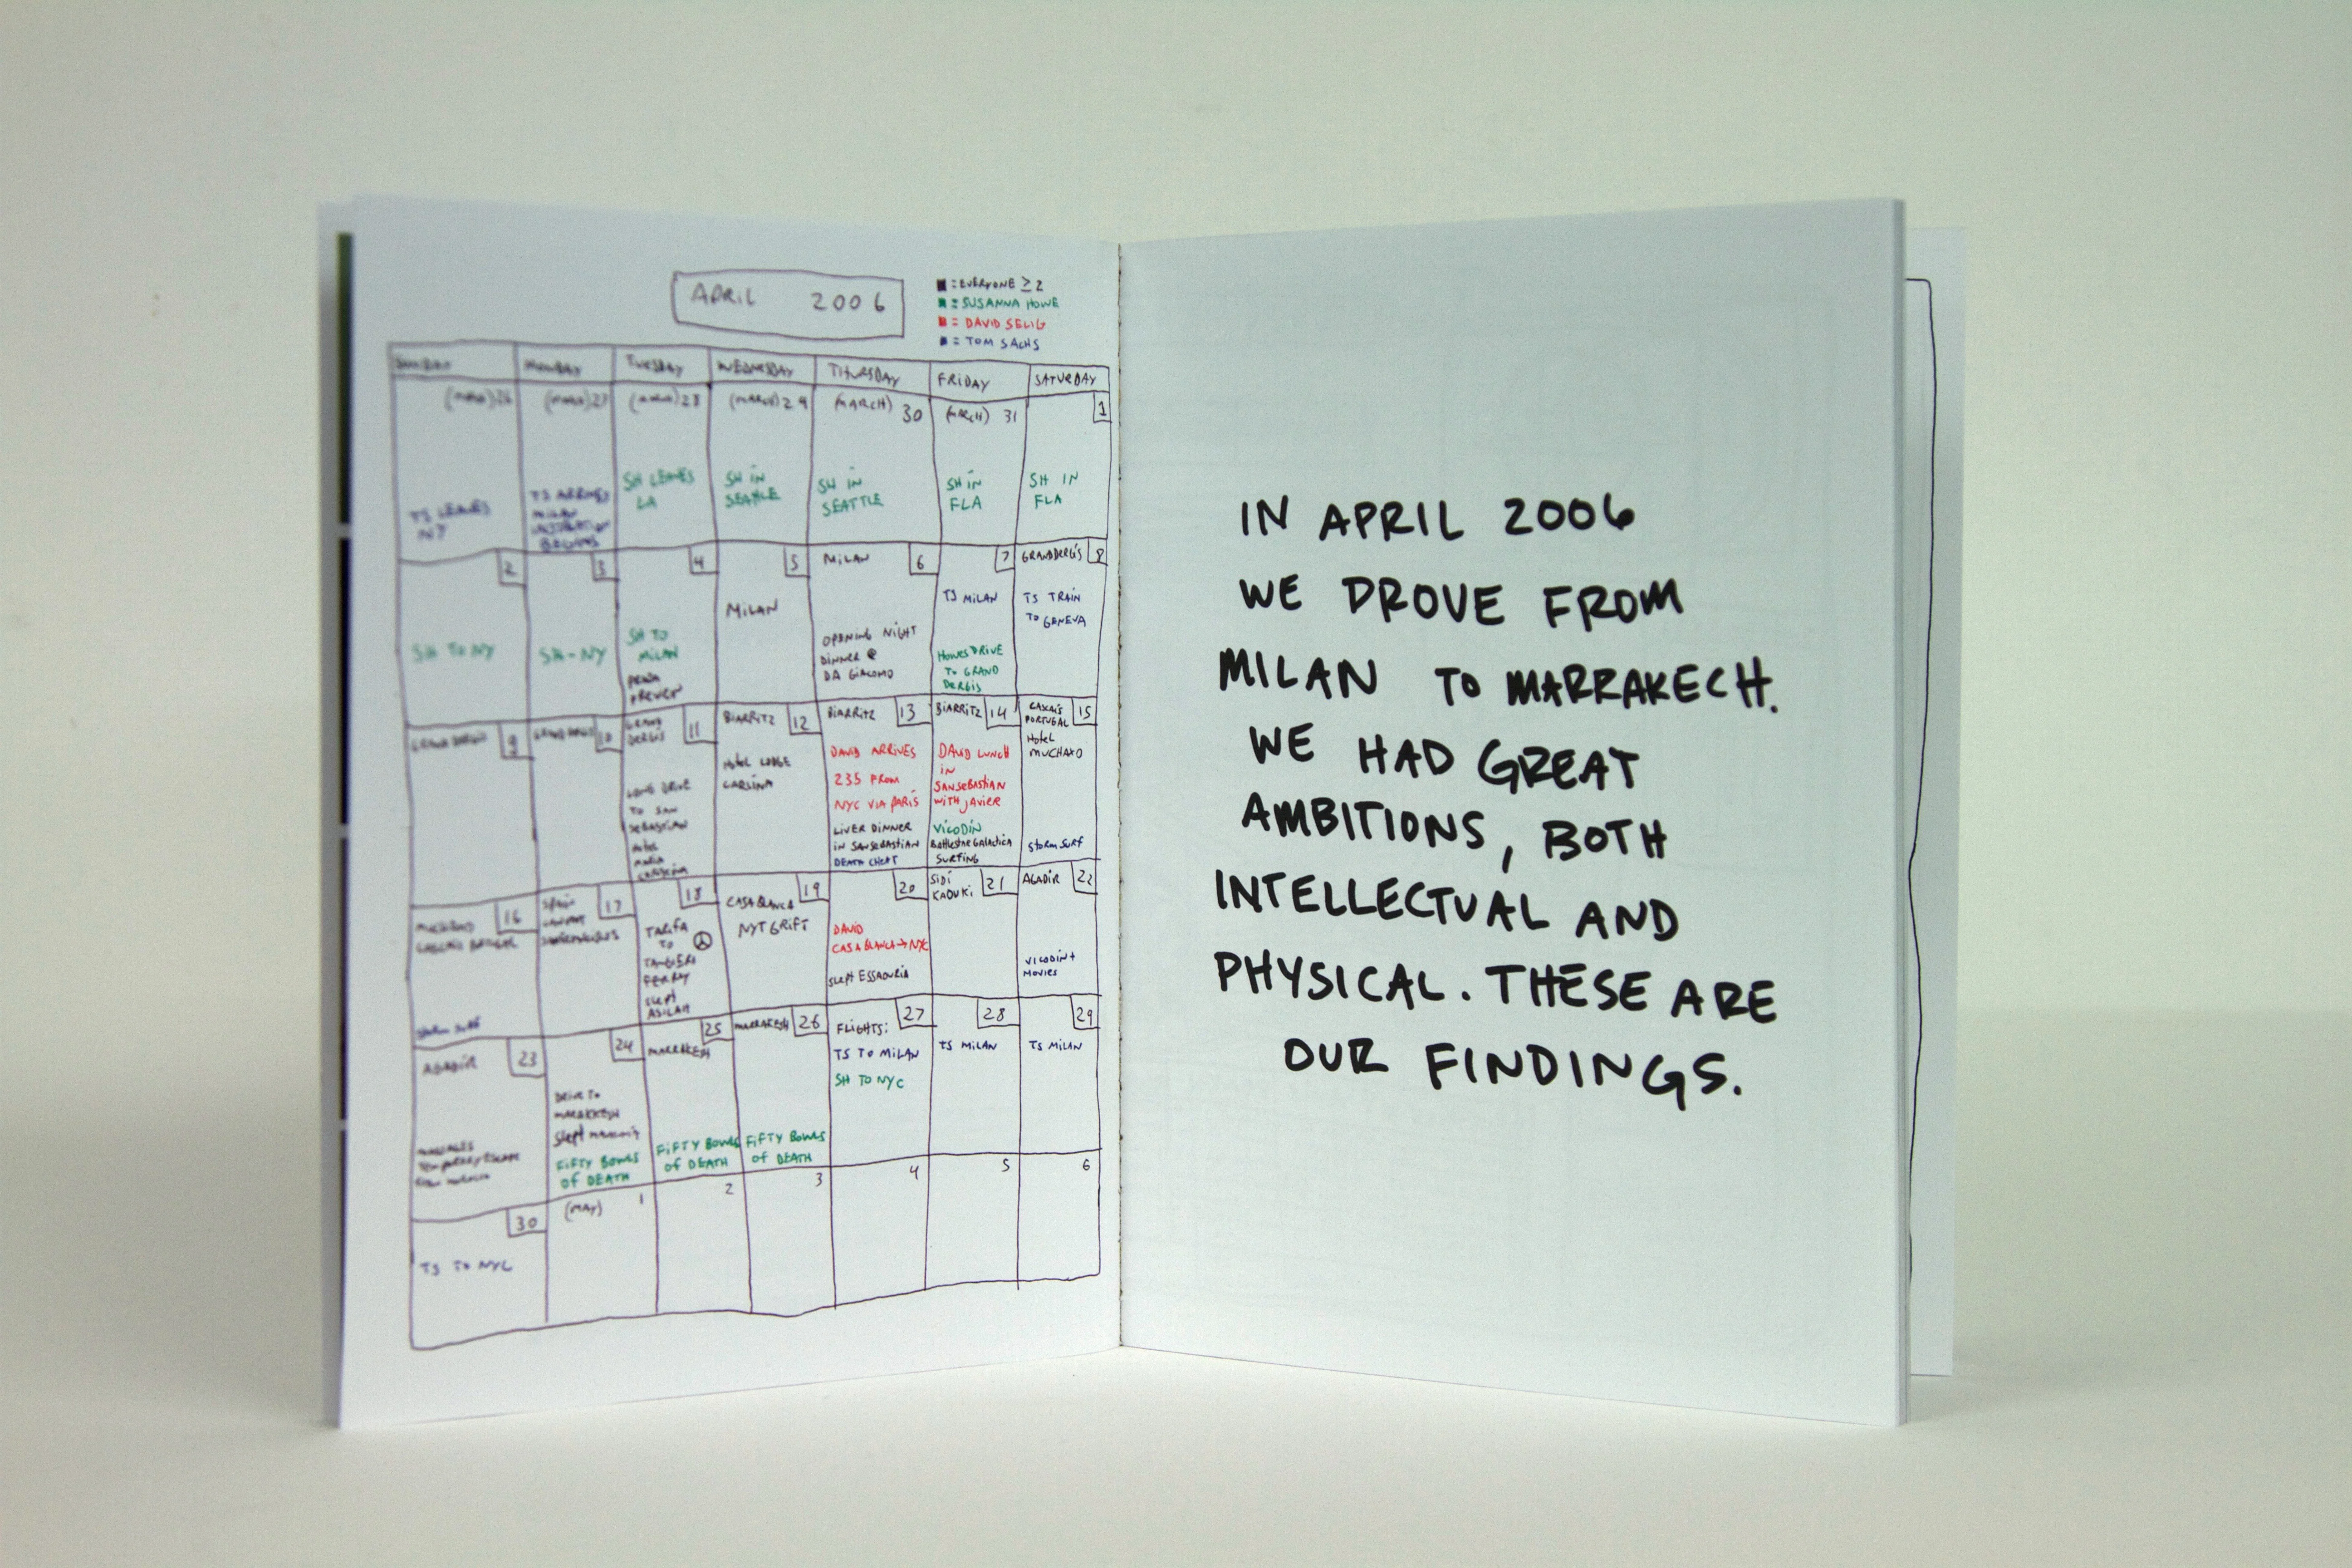 APRIL 2006
= EVERYONE ≥ 2
= SUSANNA HOWE
= DAVID SELIG
= TOM SACHS
SUNDAY MONDAY TUESDAY WEDNESDAY THURSDAY FRIDAY SATURDAY
(MARCH) 26
TS LEAVES
NY
(MARCH) 27
TS ARRIVES
MILAN
INSTALLATION
BEGINS
(MARCH) 28
SH LEAVES
LA
(MARCH) 29
SH IN
SEATTLE
(MARCH) 30
SH IN
SEATTLE
(MARCH) 31
SH IN
FLA
1
SH IN
FLA
2
SH TO NY
3
SH-NY
4
SH TO
MILAN
PRADA
5
MILAN
MILAN 6
OPENING NIGHT
DINNER @
DA GIACOMO
7
TS MILAN
HOWES DRIVE
TO GRAND
DERGIS
GRAND DERGIS 8
TS TRAIN
TO GENEVA
GRAND DERGIS 9
GRAND DERGIS 10
GRAND 11
DERGIS
LONG DRIVE
TO SAN
SEBASTIAN
HOTEL
MARIA
CRISTINA
BIARRITZ 12
HOTEL LODGE
BIARRITZ 13
DAVID ARRIVES
235 FROM
NYC VIA PARIS
LIVER DINNER
IN SAN SEBASTIAN
DEATH CHEAT
BIARRITZ 14
DAVID LUNCH
IN
SAN SEBASTIAN
WITH JAVIER
VICODIN
BATTLESTAR GALACTICA
SURFING
CASCAIS 15
PORTUGAL
HOTEL
MUCHAXO
STORM SURF
16
STORM SURF
SPAIN 17
18
TARIFA
TO
TANGIERS
FERRY
SLEPT
ASILAH
19
CASABLANCA
NYT GRIFT
20
DAVID
CASABLANCA → NYC
SLEPT ESSAOURIA
SIDI 21
KAOUKI
AGADIR 22
VICODIN +
MOVIES
AGADIR 23
MASSAGES
TEMPORARY ESCAPE
FROM MOROCCO
24
DRIVE TO
MARAKKESH
SLEPT
FIFTY BOWLS
OF DEATH
25
MARRAKESH
FIFTY BOWLS
OF DEATH
MARRAKESH 26
FIFTY BOWLS
OF DEATH
27
FLIGHTS:
TS TO MILAN
SH TO NYC
28
TS MILAN
29
TS MILAN
30
TS TO NYC
(MAY) 1
2
3
4
5
6
IN APRIL 2006
WE DROVE FROM
MILAN TO MARRAKECH.
WE HAD GREAT
AMBITIONS, BOTH
INTELLECTUAL AND
PHYSICAL. THESE ARE
OUR FINDINGS.